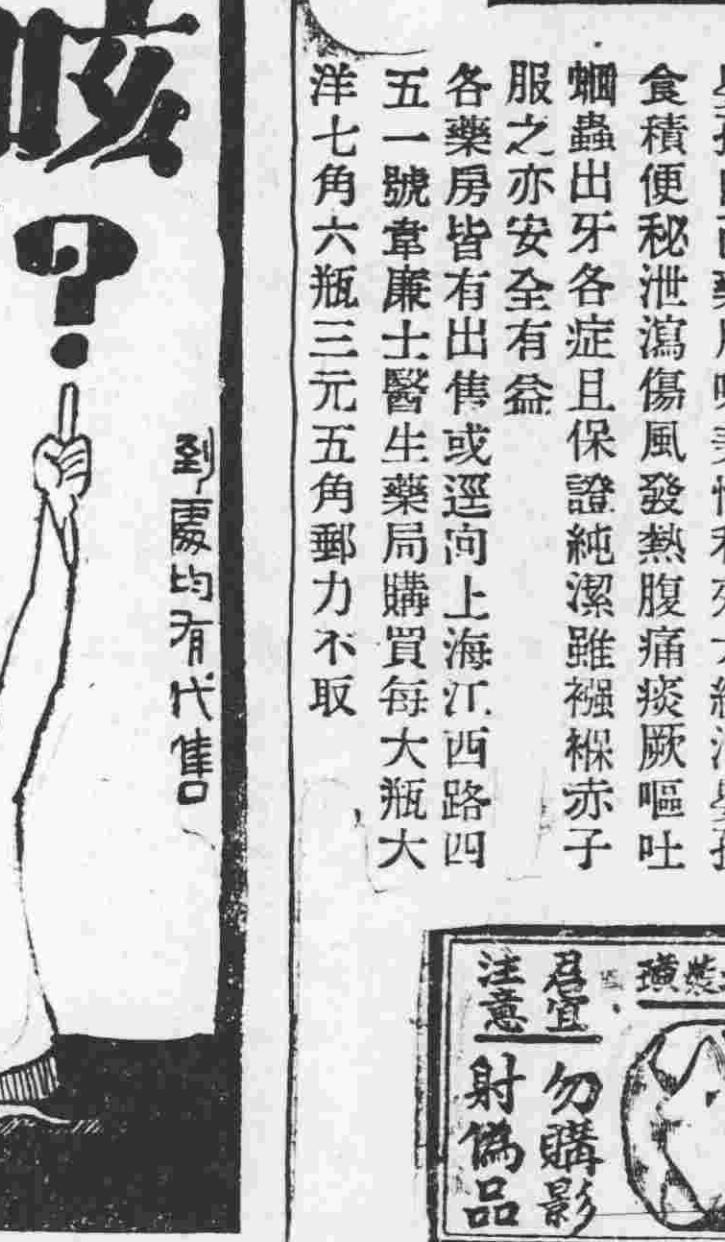 食積便秘泄瀉傷風發熱腹痛痰厥嘔吐
蛔蟲出牙各症且保證純潔雖襁褓赤子
服之亦安全有益
各藥房皆有出售或逕向上海江西路四
五一號韋廉士醫生藥局購買每大瓶大
洋七角六瓶三元五角郵力不取
裝璜
君宜
注意
勿購影
射偽品
咳?
到處均有代售